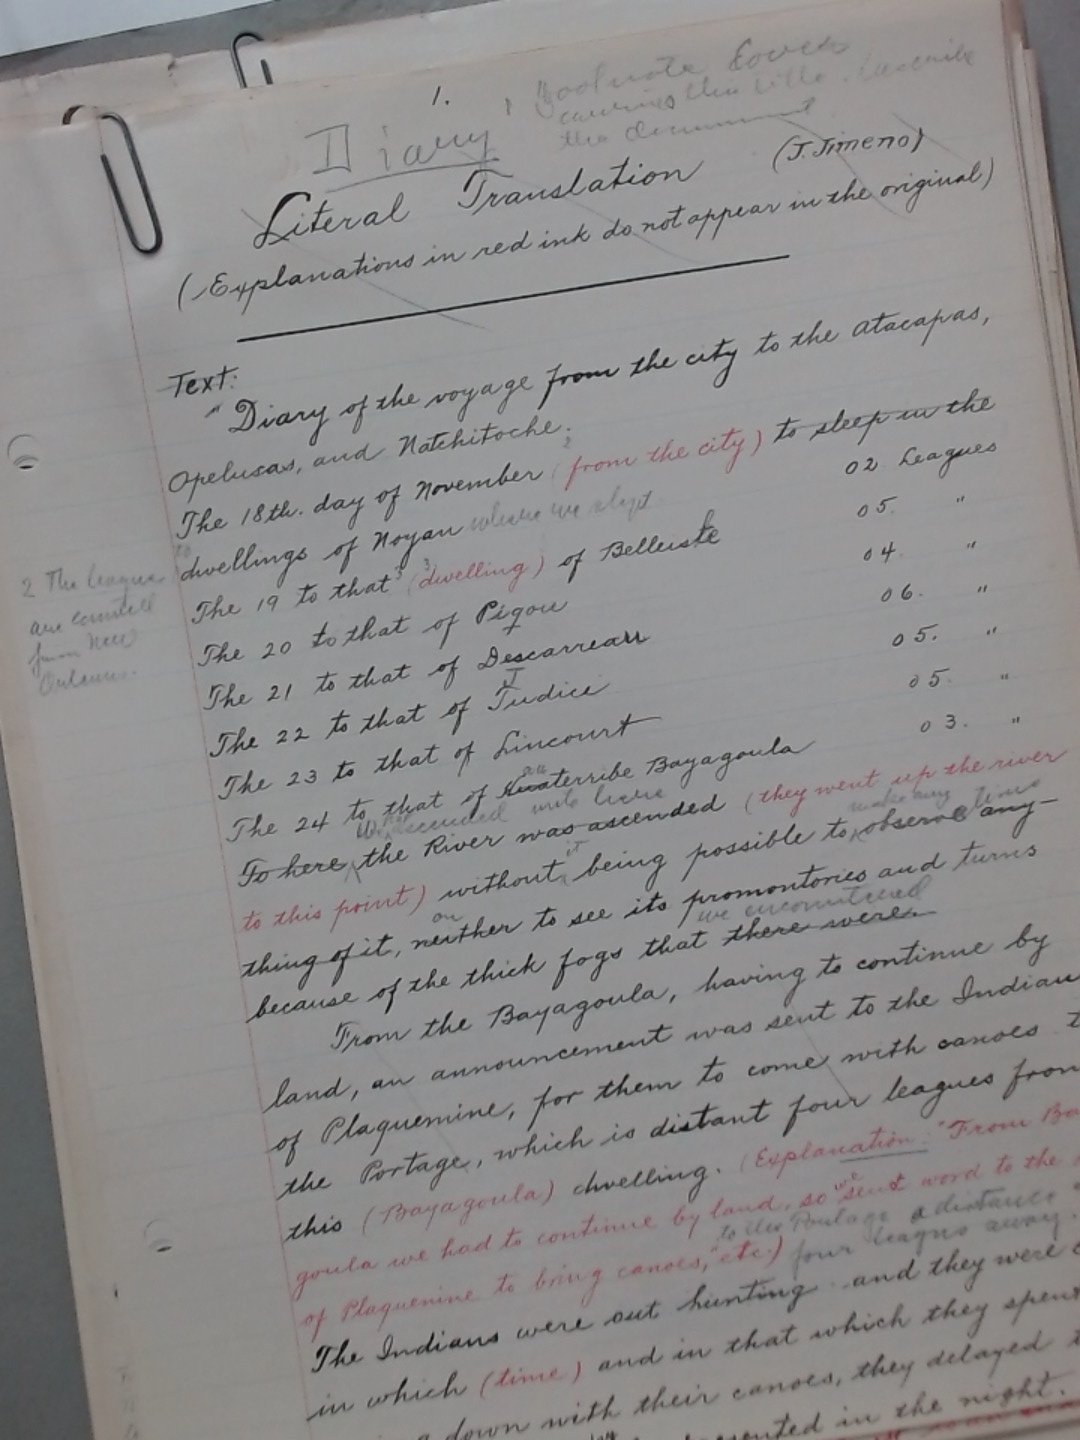 1.
Diary
footnote
the document
Literal Translation (J. Jimeno)
(Explanations in red ink do not appear in the original)
Text:
"Diary of the voyage from the city to the Atacapas,
Opelusas, and Natchitoche.
The 18th. day of November (from the city) to sleep in the
dwellings of Noyan where we slept 02 Leagues
The 19 to that (dwelling) of Belleisle 05. "
The 20 to that of Pigou 04 "
The 21 to that of Descarreau 06. "
The 22 to that of Judice 05. "
The 23 to that of Lincourt 05. "
The 24 to that of terribe Bayagoula 03. "
2 The leagues
are counted
from New
Orleans.
We ascended until here
To here, the River was ascended (they went up the river
it make any
to this point) without being possible to observe any-
or
thing of it, neither to see its promontories and turns
we encountered
because of the thick fogs that there were.
From the Bayagoula, having to continue by
land, an announcement was sent to the Indian
of Plaquemine, for them to come with canoes
the Portage, which is distant four leagues from
this (Bayagoula) dwelling. (Explanation: "From Ba
goula we had to continue by land, so we sent word to the
to the Portage a distance
of Plaquenine to bring canoes," etc.) four leagues away.
The Indians were out hunting and they were
in which (time) and in that which they spent
down with their canoes, they delayed
in the night.